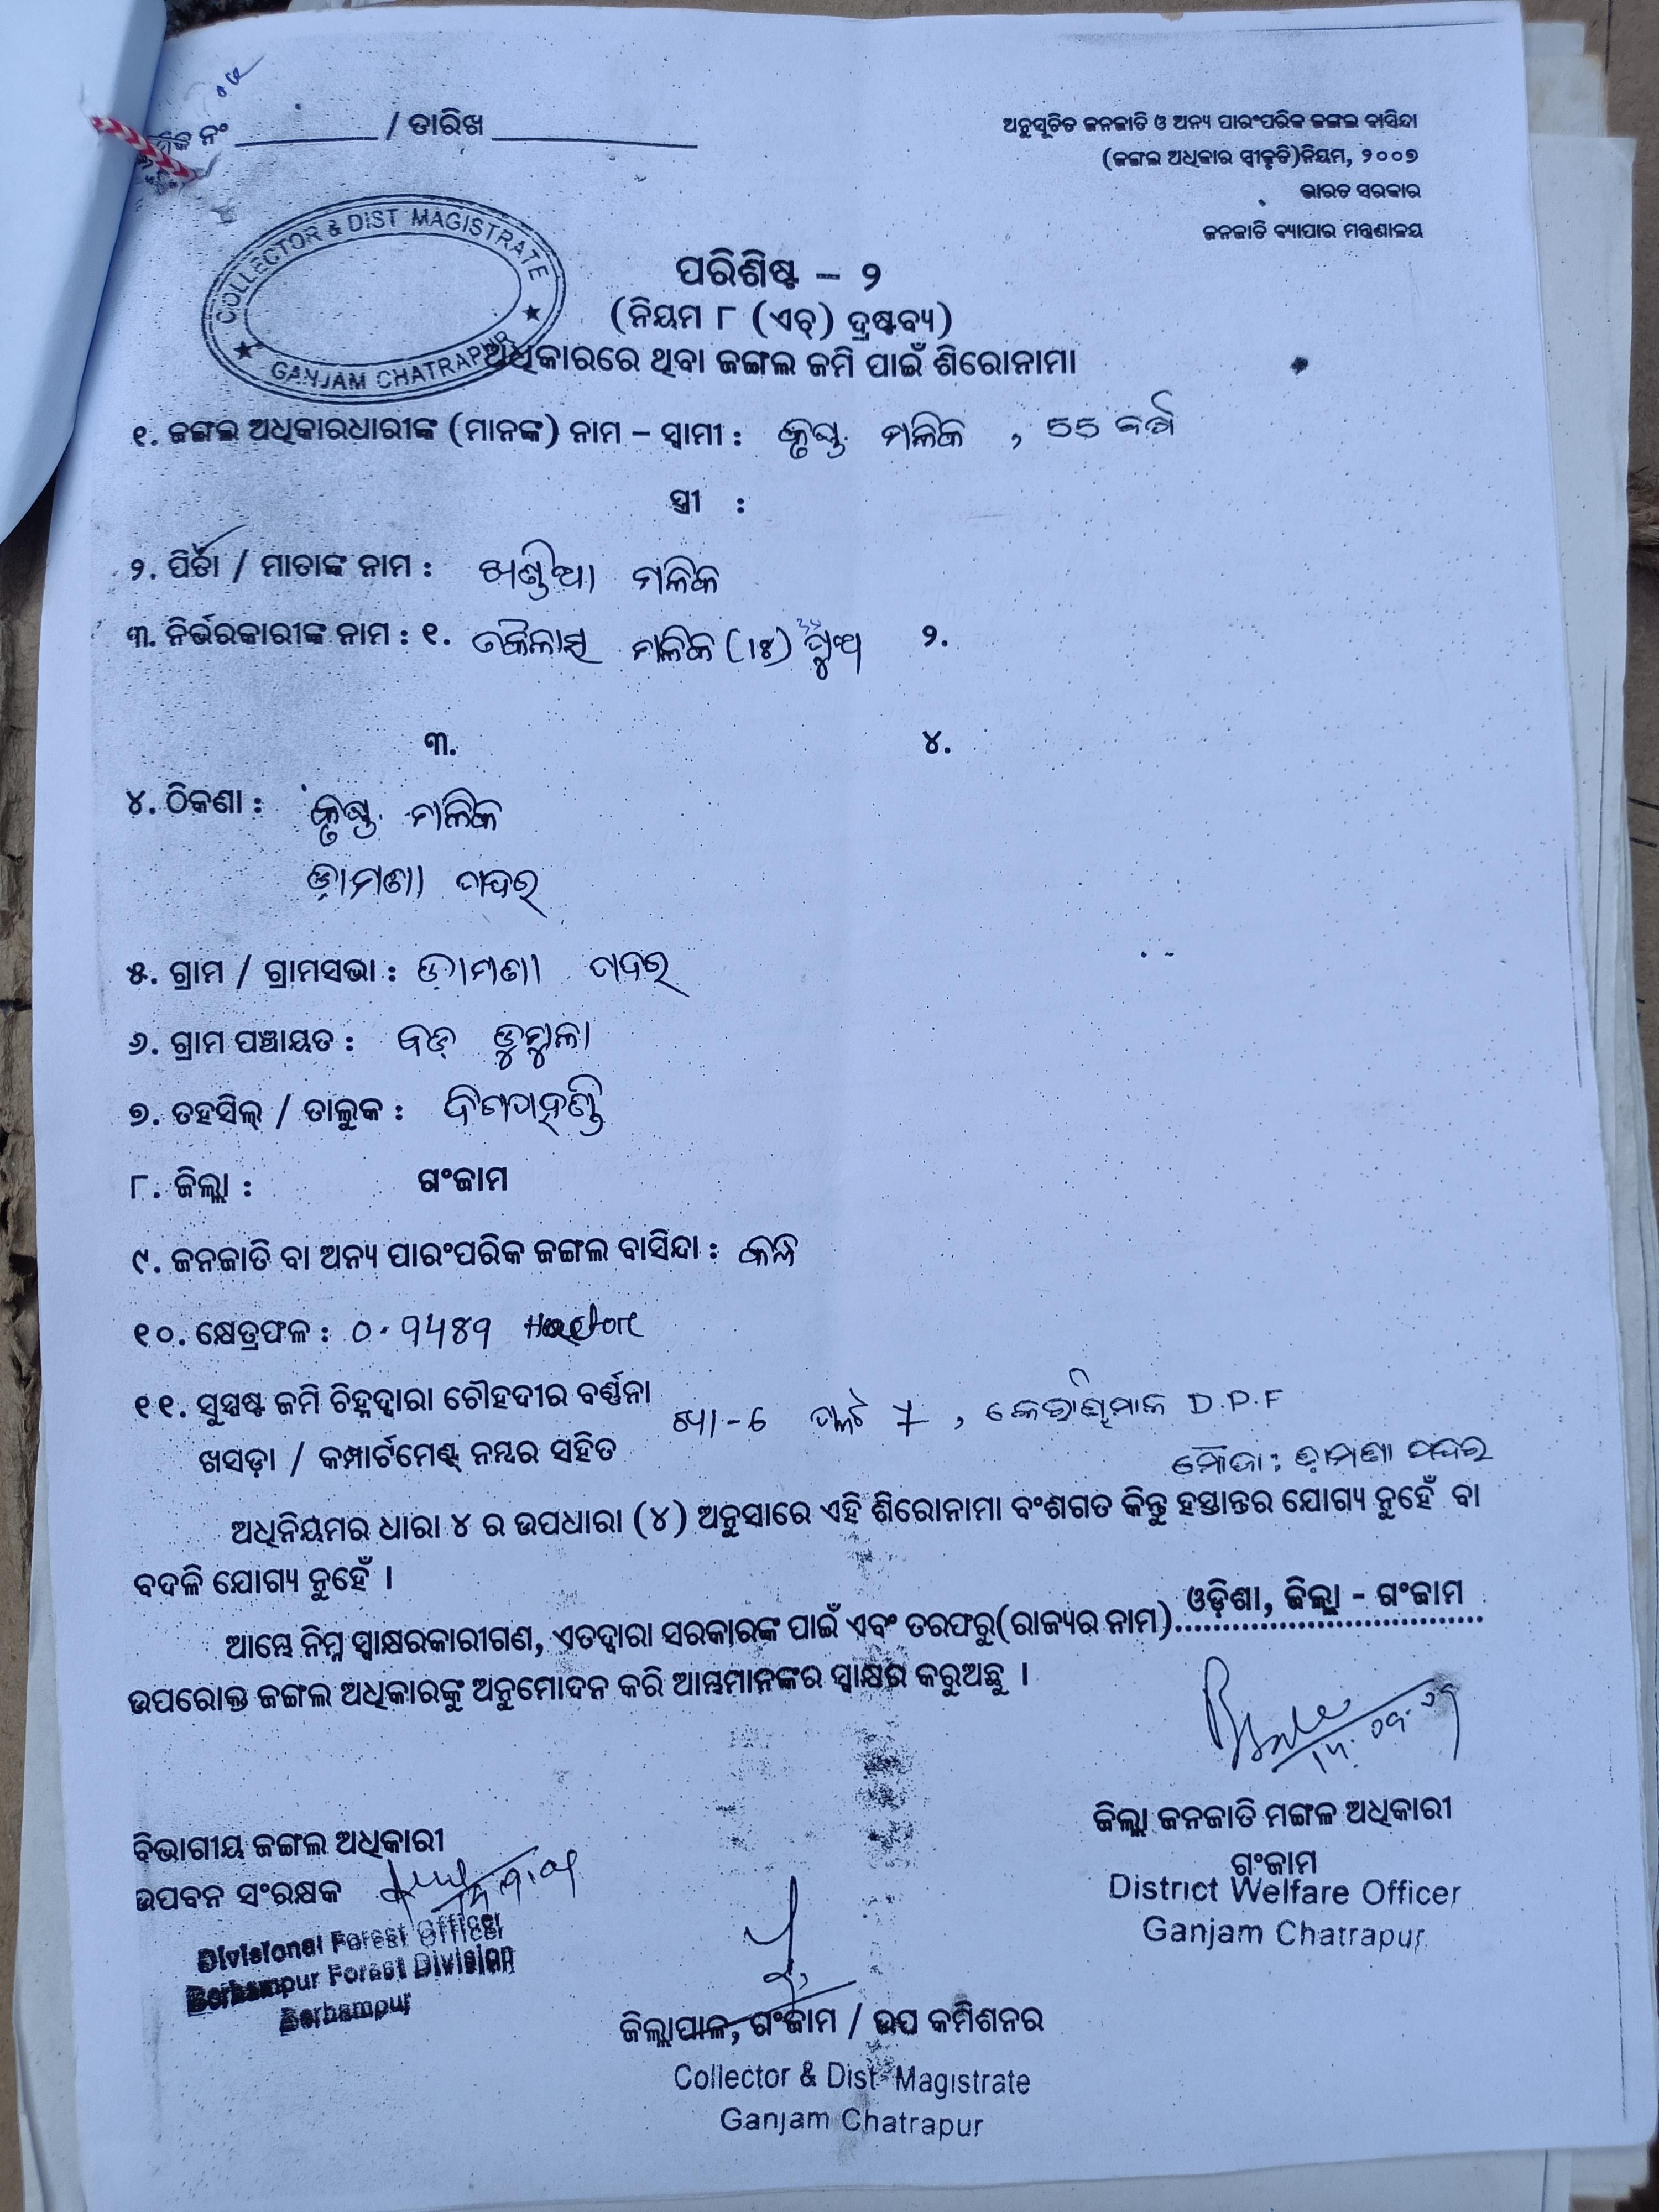 କ ନଂ ________ / ତାରିଖ ____________
ଅନୁସୂଚିତ ଜନଜାତି ଓ ଅନ୍ୟ ପାରଂପରିକ ଜଙ୍ଗଲ ବାସିନ୍ଦା
(ଜଙ୍ଗଲ ଅଧିକାର ସ୍ୱୀକୃତି)ନିୟମ, ୨୦୦୭
ଭାରତ ସରକାର
ଜନଜାତି ବ୍ୟାପାର ମନ୍ତ୍ରଣାଳୟ
COLLECTOR & DIST MAGISTRATE
GANJAM CHATRAPUR
ପରିଶିଷ୍ଟ – ୨
(ନିୟମ ୮ (ଏଚ୍) ଦ୍ରଷ୍ଟବ୍ୟ)
ଅଧିକାରରେ ଥିବା ଜଙ୍ଗଲ ଜମି ପାଇଁ ଶିରୋନାମା
୧. ଜଙ୍ଗଲ ଅଧିକାରଧାରୀଙ୍କ (ମାନଙ୍କ) ନାମ – ସ୍ୱାମୀ : କୃଷ୍ଣ ମଳିକ , 55 ବର୍ଷ
ସ୍ତ୍ରୀ :
୨. ପିତା / ମାତାଙ୍କ ନାମ : ଖଣ୍ଡିଆ ମଳିକ
୩. ନିର୍ଭରକାରୀଙ୍କ ନାମ : ୧. କୈଳାସ ମଳିକ (୧୫) ପୁଅ ୨.
୩. ୪.
୪. ଠିକଣା : କୃଷ୍ଣ ମଳିକ
ଡ଼ାମଣା ପଦର
୫. ଗ୍ରାମ / ଗ୍ରାମସଭା : ଡ଼ାମଣା ପଦର
୬. ଗ୍ରାମ ପଞ୍ଚାୟତ : ବଡ଼ ଡୁମୁଳା
୭. ତହସିଲ୍ / ତାଲୁକ : ଦିଗପହଣ୍ଡି
୮. ଜିଲ୍ଲା : ଗଂଜାମ
୯. ଜନଜାତି ବା ଅନ୍ୟ ପାରଂପରିକ ଜଙ୍ଗଲ ବାସିନ୍ଦା : କନ୍ଧ
୧୦. କ୍ଷେତ୍ରଫଳ : Hectore
୧୧. ସୁସ୍ପଷ୍ଟ ଜମି ଚିହ୍ନଦ୍ୱାରା ଚୌହଦୀର ବର୍ଣ୍ଣନା
ଖସଡ଼ା / କମ୍ପାର୍ଟମେଣ୍ଟ୍ ନମ୍ବର ସହିତ ପ୍ଲଟ , D.P.F
ମୌଜା : ଡ଼ାମଣା ପଦର
ଅଧିନିୟମର ଧାରା ୪ ର ଉପଧାରା (୪) ଅନୁସାରେ ଏହି ଶିରୋନାମା ବଂଶଗତ କିନ୍ତୁ ହସ୍ତାନ୍ତର ଯୋଗ୍ୟ ନୁହେଁ ବା
ବଦଳି ଯୋଗ୍ୟ ନୁହେଁ ।
ଆମ୍ଭେ ନିମ୍ନ ସ୍ୱାକ୍ଷରକାରୀଗଣ, ଏତଦ୍ଦ୍ୱାରା ସରକାରଙ୍କ ପାଇଁ ଏବଂ ତରଫରୁ(ରାଜ୍ୟର ନାମ) ଓଡ଼ିଶା, ଜିଲ୍ଲା - ଗଂଜାମ
ଉପରୋକ୍ତ ଜଙ୍ଗଲ ଅଧିକାରଙ୍କୁ ଅନୁମୋଦନ କରି ଆମ୍ଭମାନଙ୍କର ସ୍ୱାକ୍ଷର କରୁଅଛୁ ।
ଜିଲ୍ଲା ଜନଜାତି ମଙ୍ଗଳ ଅଧିକାରୀ
ଗଂଜାମ
District Welfare Officer
Ganjam Chatrapur
ବିଭାଗୀୟ ଜଙ୍ଗଲ ଅଧିକାରୀ
ଉପବନ ସଂରକ୍ଷକ
Divisional Forest Officer
Berhampur Forest Division
Berhampur
ଜିଲ୍ଲାପାଳ, ଗଂଜାମ / ଉପ କମିଶନର
Collector & Dist Magistrate
Ganjam Chatrapur